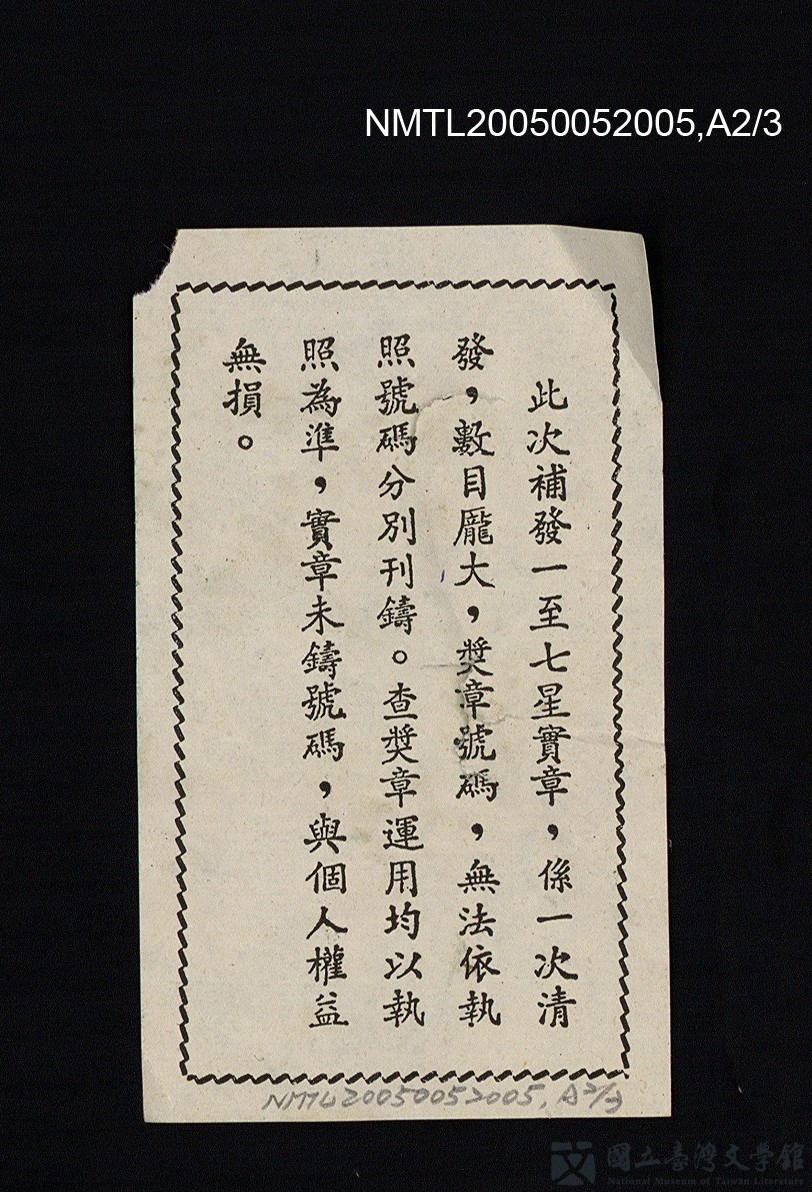 NMTL20050052005,A2/3
此次補發一至七星實章，係一次清
發，數目龐大，獎章號碼，無法依執
照號碼分別刊鑄。查獎章運用均以執
照為準，實章未鑄號碼，與個人權益
無損。
NMTL20050052005, A2/3
國立臺灣文學館
National Museum of Taiwan Literature